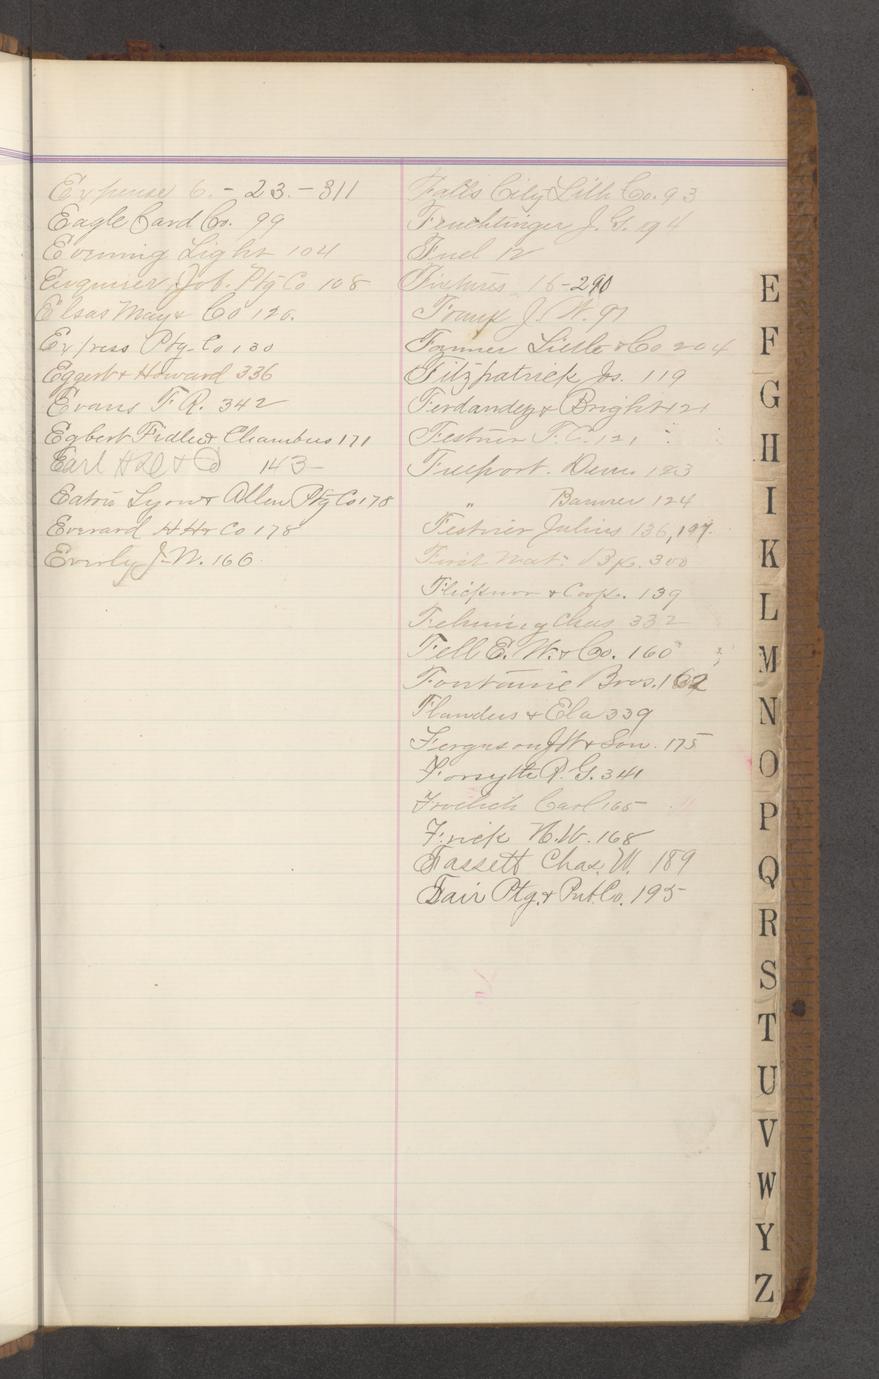 Expense 6. - 23. - 311
Eagle Card Co. 99
Evening Light 104
Enquirer Job. Ptg Co 108
Elsas May & Co 120.
Express Ptg. Co 130
Eggert & Howard 336
Evans F R. 342
Egbert Fidlar & Chambers 171
Earl 143
Eaton Lyon & Allen Ptg Co 178
Everard H H & Co 178
Everly J. N. 166
Falls City Lith Co. 93
Feuchtinger J. G. 94
Fuel 12
Fixtures 16-290
Frank J. W. 97
Farmer Little & Co 204
Fitzpatrick Jos. 119
Ferdandez & Bright 121
Festner F. C. 121
Freeport. Dem. 123
" Banner 124
Festner Julius 136, 197.
First Nat. Bk. 300
& Coop. 139
Chas 332
Fell E. W. & Co. 160
Fontaine Bros. 162
Flanders & Ela 339
Ferguson J W & Son. 175
Forsyth R. G. 341
Froelich Carl 165
Frick N. W. 168
Fassett Chas. W. 189
Fair Ptg. & Pub. Co. 195
E
F
G
H
I
K
L
M
N
O
P
Q
R
S
T
U
V
W
Y
Z